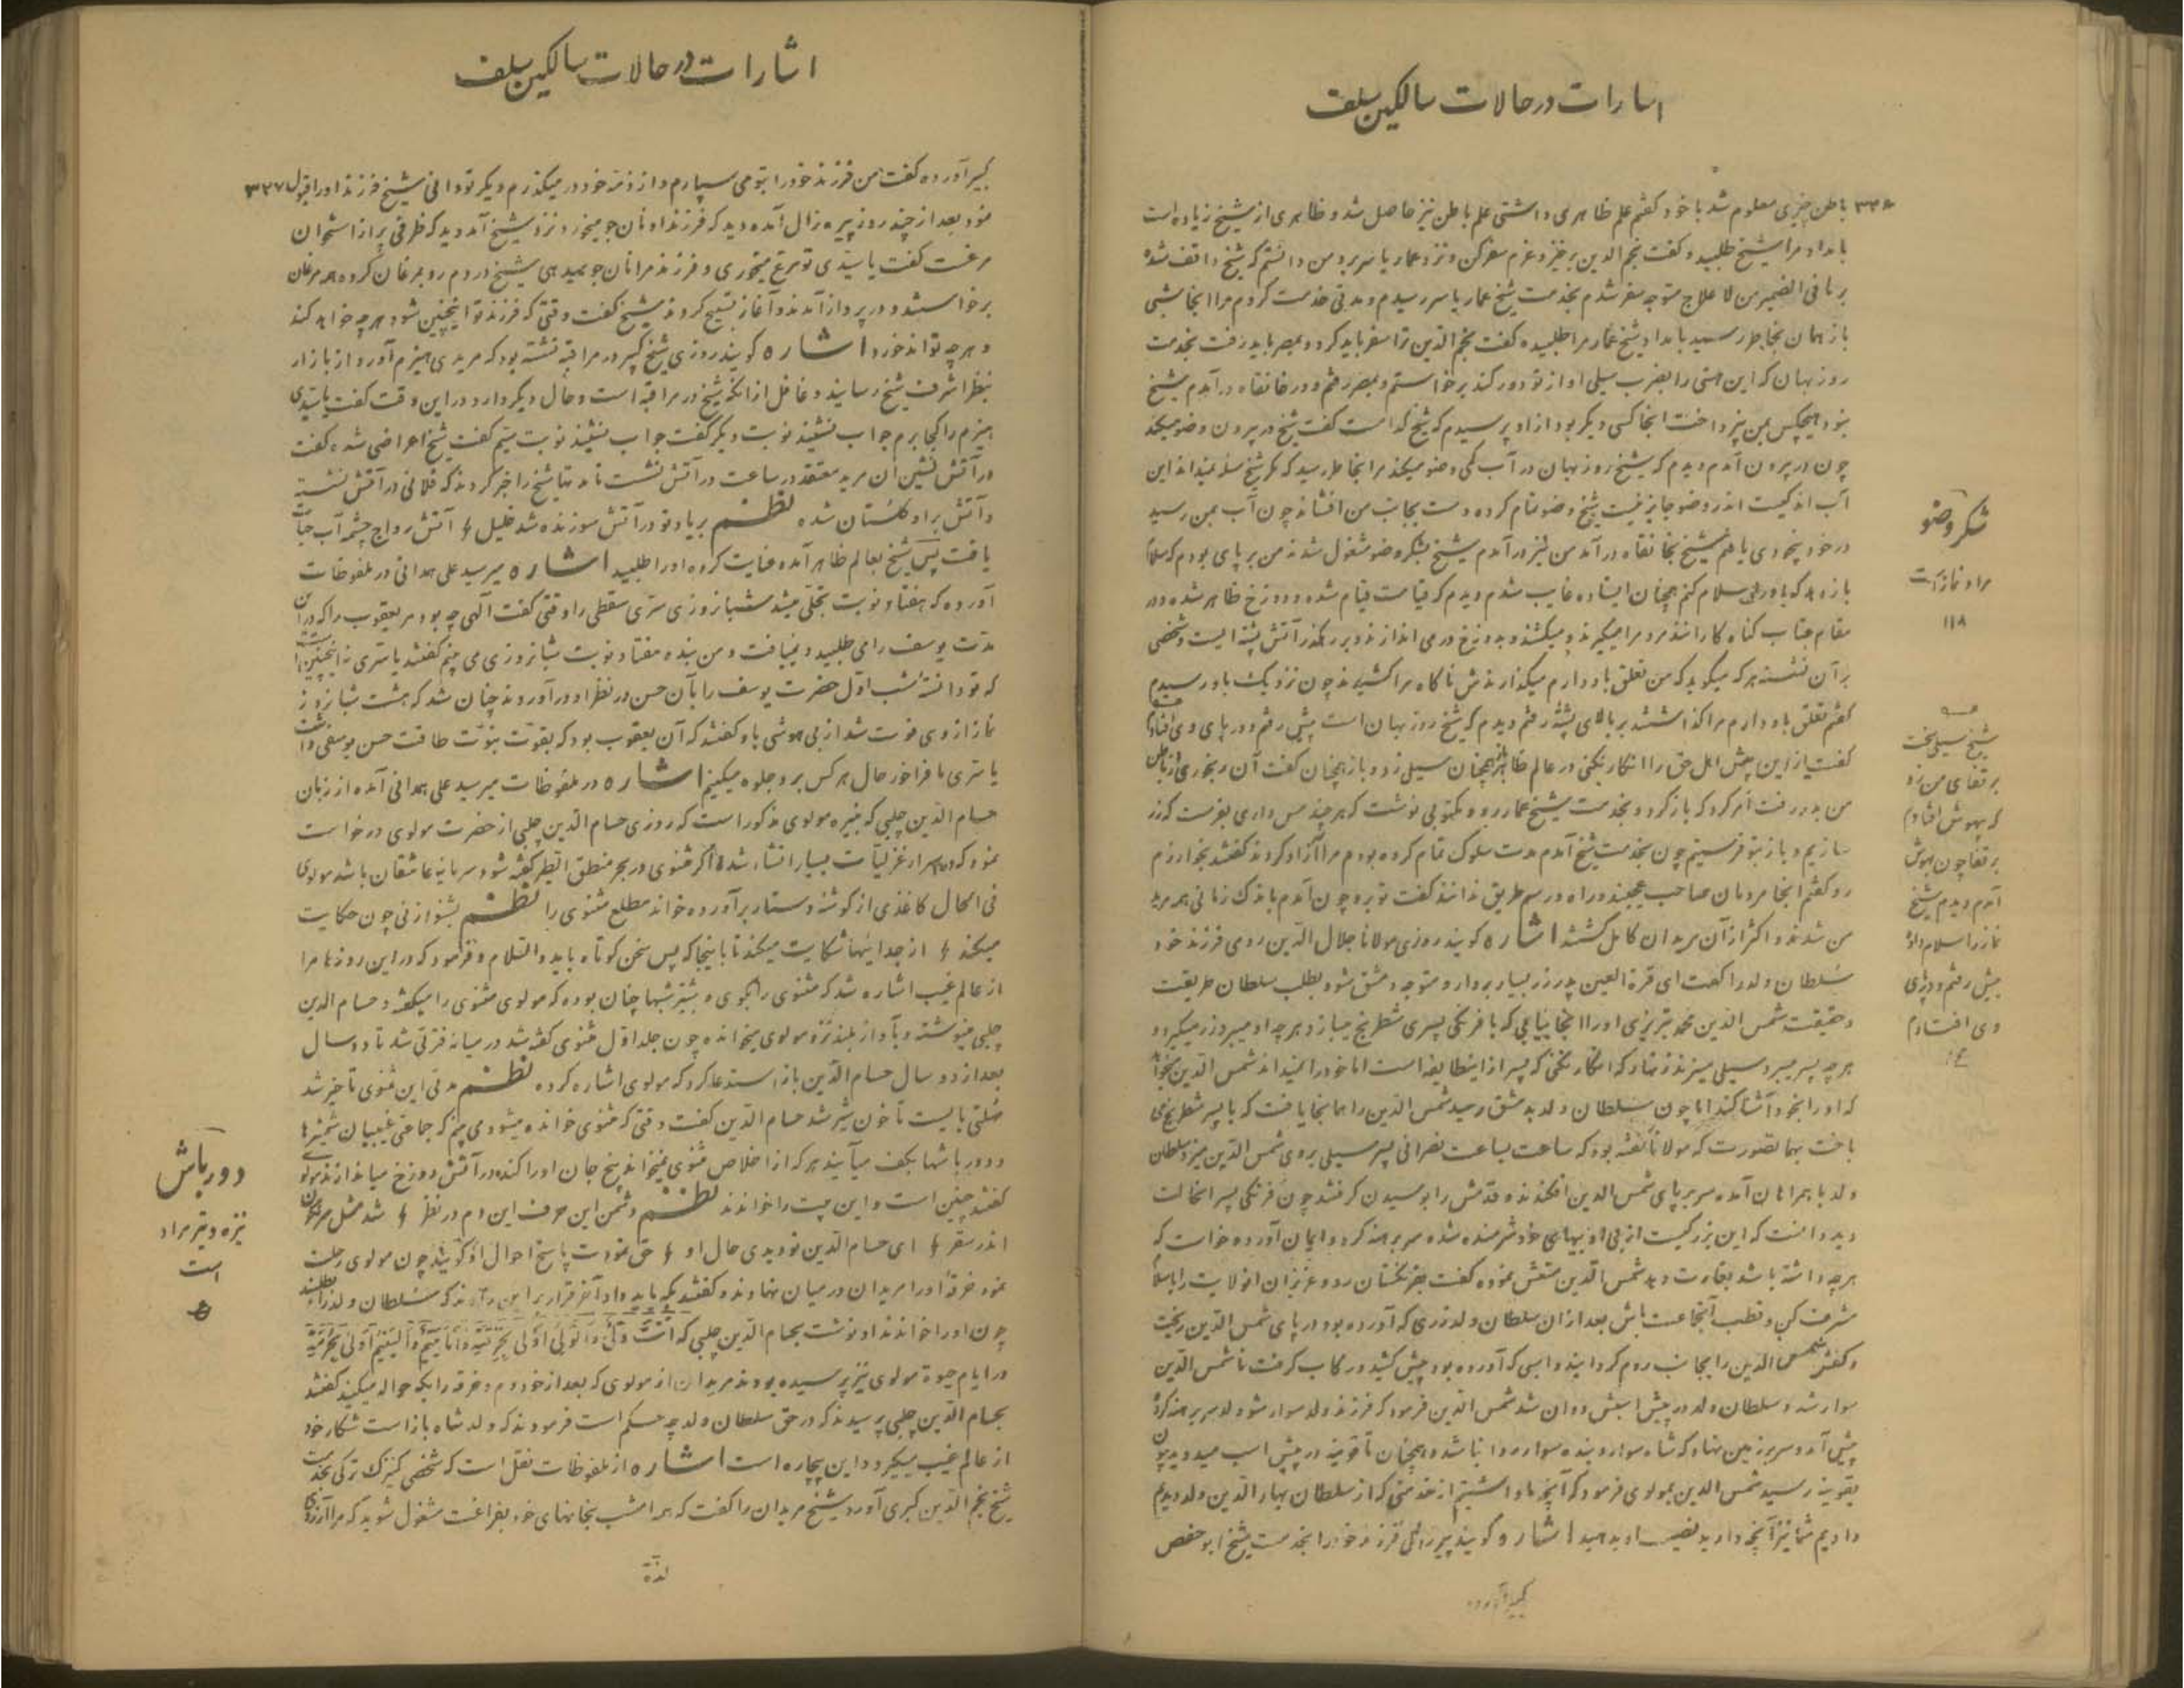 اشارات در حالات سالکین سلف
۳۳۶
باطن چیزی معلوم شد با خود گفتم علم ظاهری داشتی علم باطن نیز حاصل شد و ظاهری از شیخ زیاده است
بامداد مرا شیخ طلبید و گفت نجم الدین برخیز و عزم سفر کن و نزد عمار یاسر برو من دانستم که شیخ واقف شده
بر مافی الضمیر من لاعلاج متوجه سفر شدم بخدمت شیخ عمار یاسر رسیدم و مدتی خدمت کردم مرا آنجا شبی
باز همان بخاطر رسید بامداد شیخ عمار مرا طلبیده گفت نجم الدین ترا سفر باید کرد و بمصر باید رفت بخدمت
روزبهان که این هستی را بضرب سیلی او از تو دور کند برخواستم و بمصر رفتم و در خانقاه در آمدم شیخ
نبود هیچکس بمن نپرداخت آنجا کسی دیگر بود از او پرسیدم که شیخ کدام است گفت شیخ در بیرون وضو میکند
چون در بیرون آمدم دیدم که شیخ روزبهان در آب کمی وضو میکند مرا بخاطر رسید که مگر شیخ مسئله نمیداند این
آب اندکیست اندرو وضو جایز نیست شیخ وضو تمام کرده دست بجانب من افشاند چون آب بمن رسید
در خود بیخودی یافتم شیخ بخانقاه در آمد من نیز در آمدم شیخ بشکر وضو مشغول شدند من بر پای بودم که سلام
باز دهد که باو سلام کنم همچنان ایستاده غایب شدم دیدم که قیامت قیام شده و دوزخ ظاهر شده و در
مقام عتاب گناه کارانند مردم را میگیرند و میکشند و بدوزخ در می اندازند و بر رهگذر آتش پشته ایست و شخصی
بر آن نشسته هر که میگوید که من تعلق باو دارم میگذارندش ناگاه مرا کشیدند چون نزدیک باو رسیدم
گفتم تعلق باو دارم مرا گذاشتند بر بالای پشته رفتم دیدم که شیخ روزبهان است پیش رفتم و در پای وی افتادم
گفت از این پیش اهل حق را انکار نکنی در عالم ظاهر نیز همچنان سیلی زد و باز همچنان گفت آن رنجوری از باطن
من بدر رفت امر کرد که بازگرد و بخدمت شیخ عمار رو و مکتوبی نوشت که هر چند مس داری بفرست که زر
سازیم و باز بتو فرستیم چون بخدمت شیخ آمدم مدت سلوک تمام کرده بودم مرا آزاد کردند گفتند بخوارزم
رو گفتم آنجا مردمان صاحب عجبند و راه و رسم طریق ندانند گفت نو بره چون آمدم باندک زمانی همه مرید
من شدند و اکثر از آن مریدان کامل گشتند اشاره گویند روزی مولانا جلال الدین رومی فرزند خود
سلطان ولد را گفت ای قرة العین پدر زر بسیار بردار و متوجه دمشق شو و بطلب سلطان طریقت
و حقیقت شمس الدین محمد تبریزی او را آنجا بیابی که با فرنگی پسری شطرنج میبازد و هر چه او میبرد زر میگیرد و
هر چه پسر میبرد سیلی میزند زنهار که انکار نکنی که پسر از اینطایفه است اما خود را نمیداند شمس الدین میخواهد
که او را بخود آشنا کند اما چون سلطان ولد بدمشق رسید شمس الدین را همانجا یافت که با پسر شطرنج می
باخت بهمانصورت که مولانا گفته بود که ساعت بساعت نصرانی پسر سیلی بروی شمس الدین میزد سلطان
ولد با همراهان آمده سر بر پای شمس الدین افکنده قدمش را بوسیدن گرفتند چون فرنگی پسر آنحالت
دید دانست که این بزرگیست از بی ادبیهای خود شرمنده شده سر برهنه کرد و ایمان آورده خواست که
هر چه داشته باشد بغارت دهد شمس الدین منعش نموده گفت بفرنگستان رو و عزیزان آنولایت را باسلام
مشرف کن و قطب آنجماعت باش بعد از آن سلطان ولد زری که آورده بود در پای شمس الدین ریخت
و کفش شمس الدین را بجانب روم گردانید و اسبی که آورده بود پیش کشید و رکاب گرفت تا شمس الدین
سوار شد و سلطان ولد در پیش اسبش دوان شد شمس الدین فرمود که فرزند ولد سوار شو ولد سر برهنه کرده
پیش آمد و سر بر زمین نهاد که شاه سوار و بنده سوار روا نباشد و همچنان تا قونیه در پیش اسب میدوید چون
بقونیه رسید شمس الدین بمولوی فرمود که آنچه ما داشتیم از خدمتی که از سلطان بهاء الدین ولد دیدم
دادیم شما نیز آنچه دارید نصیب او بدهید اشاره گویند پیرزالی فرزند خود را بخدمت شیخ ابو حفص
کبیر آورده
شکر وضو
مراد نماز است
۱۱۸
شیخ سیلی سخت
بر قفای من زد
که بیهوش افتادم
بر قفا چون بهوش
آمدم دیدم شیخ
نماز را سلام داد
پیش رفتم و در پای
وی افتادم
اشارات در حالات سالکین سلف
۳۳۷
کبیر آورده گفت من فرزند خود را بتو می سپارم و از ذمه خود در میگذرم دیگر تو دانی شیخ فرزند او را قبول
نمود بعد از چند روز پیره زال آمده دید که فرزند او نان جو میخورد نزد شیخ آمد دید که ظرفی پر از استخوان
مرغست گفت یا سیدی تو مرغ میخوری و فرزند مرا نان جو میدهی شیخ در دم رو بمرغان کرده همه مرغان
برخاستند و در پرواز آمدند و آغاز تسبیح کردند شیخ گفت وقتی که فرزند تو اینچنین شود هر چه خواهد کند
و هر چه تواند خورد اشاره گویند روزی شیخ کبیر در مراقبه نشسته بود که مریدی هیزم آورد از بازار
بنظر اشرف شیخ رسانید و غافل از آنکه شیخ در مراقبه است و حال دیگر دارد در این وقت گفت یا سیدی
هیزم را کجا برم جواب نشنید نوبت دیگر گفت جواب نشنید نوبت سیم گفت شیخ اعراضی شده گفت
در آتش نشین آن مرید معتقد در ساعت در آتش نشست تا مدتها شیخ را خبر کردند که فلانی در آتش نشسته
و آتش بر او گلستان شده نظم بر یاد تو در آتش سوزنده شد خلیل آتش رواج چشمه آب حیات
یافت پس شیخ بعالم ظاهر آمده عنایت کرده او را طلبید اشاره میر سید علی همدانی در ملفوظات
آورده که هفتاد نوبت تجلی میشد شبانروزی سری سقطی را وقتی گفت الهی چه بود مر یعقوب را که در آن
مدت یوسف را می طلبید و نمییافت و من بنده هفتاد نوبت شبانروزی می بینم گفتند یا سری نه اینچنین است
که تو دانسته شب اول حضرت یوسف را بآن حسن در نظر او در آوردند چنان شد که هشت شبانروز
نماز از وی فوت شد از بی هوشی باو گفتند که آن یعقوب بود که بقوت نبوت طاقت حسن یوسفی داشت
یا سری ما فراخور حال هر کس بر او جلوه میکنیم اشاره در ملفوظات میر سید علی همدانی آمده از زبان
حسام الدین چلبی که نبیره مولوی مذکور است که روزی حسام الدین چلبی از حضرت مولوی درخواست
نمود که اسرار غزلیات بسیار انشاء شده اگر مثنوی در بحر منطق الطیر گفته شود سرمایه عاشقان باشد مولوی
فی الحال کاغذی از گوشه دستار برآورده خواند مطلع مثنوی را نظم بشنو از نی چون حکایت
میکند از جداییها شکایت میکند تا باینجا که پس سخن کوتاه باید والسلام و فرمود که در این روزها مرا
از عالم غیب اشاره شد که مثنوی را بگوی و بیشتر شبها چنان بوده که مولوی مثنوی را میگفته و حسام الدین
چلبی مینوشته و بآواز بلند نزد مولوی میخوانده چون جلد اول مثنوی گفته شد در میانه فرقتی شد تا دو سال
بعد از دو سال حسام الدین باز استدعا کرد که مولوی اشاره کرده نظم مدتی این مثنوی تأخیر شد
مهلتی بایست تا خون شیر شد حسام الدین گفت وقتی که مثنوی خوانده میشود می بینم که جماعتی غیبیان شمشیرها
و دورباشها بکف میآیند هر که از اخلاص مثنوی نمیخواند بیخ جان او را کنده در آتش دوزخ میاندازند مولوی
گفتند چنین است و این بیت را خواندند نظم دشمن این حرف این دم در نظر شد ممثل سرنگون
اندر سقر ای حسام الدین تو دیدی حال او حق نمودت پاسخ احوال او گویند چون مولوی رحلت
نمود خرقه او را مریدان در میان نهادند و گفتند بکه باید داد آخر قرار بر این دادند که سلطان ولد را بطلبند
چون او را خواندند او نوشت بحسام الدین چلبی که
در ایام حیوة مولوی نیز پرسیده بودند مریدان از مولوی که بعد از خود دم و خرقه را بکه حواله میکنید گفتند
بحسام الدین چلبی پرسیدند که در حق سلطان ولد چه حکم است فرمودند که ولد شاه باز است شکار خود
از عالم غیب میگیرد و این بیچاره است اشاره از ملفوظات نقل است که شخصی کنیزک ترکی بخدمت
شیخ نجم الدین کبری آورد شیخ مریدان را گفت که همه امشب بخانهای خود بفراغت مشغول شوید که مرا آرزوی
لذة
دورباش
نیزه و تبر مراد
است